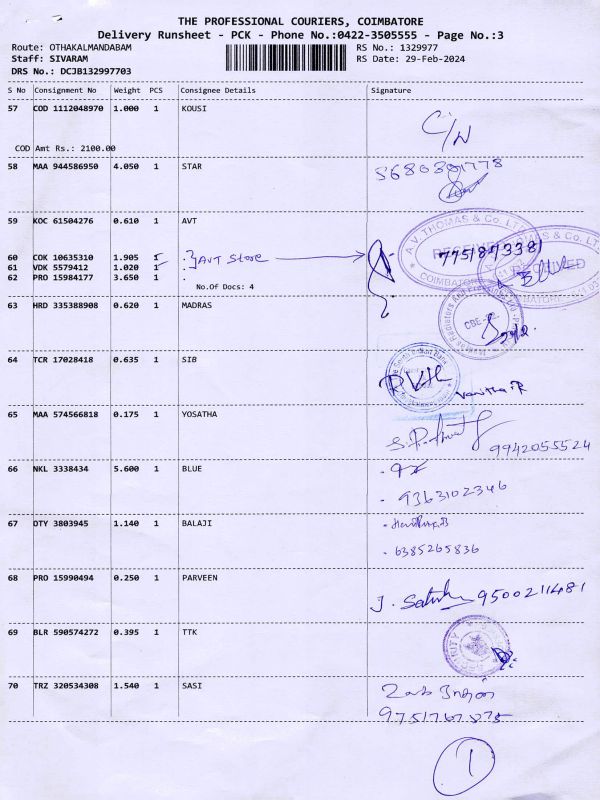 THE PROFESSIONAL COURIERS, COIMBATORE
Delivery Runsheet - PCK - Phone No.:0422-3505555 - Page No.:3
Route: OTHAKALMANDABAM
RS No.: 1329977
Staff: SIVARAM
RS Date: 29-Feb-2024
DRS No.: DCJB132997703
S No Consignment No Weight PCS Consignee Details Signature
57 COD 1112048970 1.000 1 KOUSI
C/N
COD Amt Rs.: 2100.00
58 MAA 944586950 4.050 1 STAR
59 KOC 61504276 0.610 1 AVT
A.V. THOMAS & Co. LTD
7751873381
60 COK 10635310 1.905 1
} AVT Store
61 VDK 5579412 1.020 1
62 PRO 15984177 3.650 1 .
No.Of Docs: 4
COIMBATORE
63 HRD 335388908 0.620 1 MADRAS
64 TCR 17028418 0.635 1 SIB
65 MAA 574566818 0.175 1 YOSATHA
9942055524
66 NKL 3338434 5.600 1 BLUE
9363102346
67 OTY 3803945 1.140 1 BALAJI
6385265836
68 PRO 15990494 0.250 1 PARVEEN
9500211481
69 BLR 590574272 0.395 1 TTK
SECURITY
70 TRZ 320534308 1.540 1 SASI
1